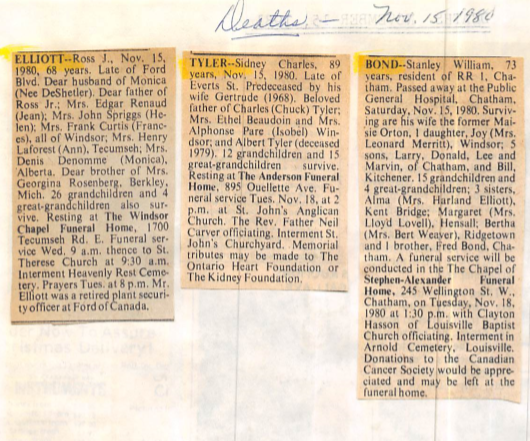 Deaths - Nov. 15, 1980
ELLIOTT--Ross J., Nov. 15,
1980, 68 years. Late of Ford
Blvd. Dear husband of Monica
(Nee DeShetler). Dear father of
Ross Jr.; Mrs. Edgar Renaud
(Jean); Mrs. John Spriggs (He-
len); Mrs. Frank Curtis (Franc-
es), all of Windsor; Mrs. Henry
Laforest (Ann), Tecumseh; Mrs.
Denis Denomme (Monica),
Alberta. Dear brother of Mrs.
Georgina Rosenberg, Berkley,
Mich. 26 grandchildren and 4
great-grandchildren also sur-
vive. Resting at The Windsor
Chapel Funeral Home, 1700
Tecumseh Rd. E. Funeral ser-
vice Wed. 9 a.m. thence to St.
Therese Church at 9:30 a.m.
Interment Heavenly Rest Ceme-
tery. Prayers Tues. at 8 p.m. Mr.
Elliott was a retired plant securi-
ty officer at Ford of Canada.
TYLER--Sidney Charles, 89
years, Nov. 15, 1980. Late of
Everts St. Predeceased by his
wife Gertrude (1968). Beloved
father of Charles (Chuck) Tyler;
Mrs. Ethel Beaudoin and Mrs.
Alphonse Pare (Isobel) Win-
dsor; and Albert Tyler (deceased
1979). 12 grandchildren and 15
great-grandchildren survive.
Resting at The Anderson Funeral
Home, 895 Ouellette Ave. Fu-
neral service Tues. Nov. 18, at 2
p.m. at St. John's Anglican
Church. The Rev. Father Neil
Carver officiating. Interment St.
John's Churchyard. Memorial
tributes may be made to The
Ontario Heart Foundation or
The Kidney Foundation.
BOND--Stanley William, 73
years, resident of RR 1, Cha-
tham. Passed away at the Public
General Hospital, Chatham,
Saturday, Nov. 15, 1980. Surviv-
ing are his wife the former Mai-
sie Orton, 1 daughter, Joy (Mrs.
Leonard Merritt), Windsor; 5
sons, Larry, Donald, Lee and
Marvin, of Chatham, and Bill,
Kitchener. 15 grandchildren and
4 great-grandchildren; 3 sisters,
Alma (Mrs. Harland Elliott),
Kent Bridge; Margaret (Mrs.
Lloyd Lovell), Hensall; Bertha
(Mrs. Bert Weaver), Ridgetown
and 1 brother, Fred Bond, Cha-
tham. A funeral service will be
conducted in the The Chapel of
Stephen-Alexander Funeral
Home, 245 Wellington St. W.,
Chatham, on Tuesday, Nov. 18,
1980 at 1:30 p.m. with Clayton
Hasson of Louisville Baptist
Church officiating. Interment in
Arnold Cemetery, Louisville.
Donations to the Canadian
Cancer Society would be appre-
ciated and may be left at the
funeral home.